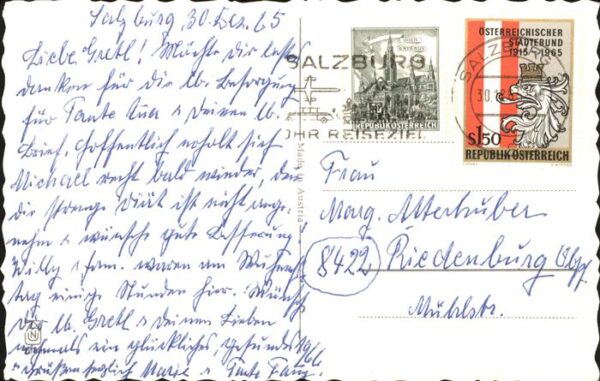 Salzburg, 30. Dez. 65
Liebe Gretl! Möchte dir bestens
danken für die lb. Besorgung
für Tante Anna & deinen lb.
Brief. Hoffentlich erholt sich
Michael recht bald wieder, denn
die strenge Diät ist nicht ange-
nehm & wünsche gute Besserung.
Willy & Fam. waren am
tag einige Stunden hier. Wünsche
dir lb. Gretl & deinen Lieben
nochmals ein glückliches, gesundes 1966
& grüßen herzlich Maria & Tante
SALZBURG
IHR REISEZIEL
REPUBLIK ÖSTERREICH
ÖSTERREICHISCHER
STÄDTEBUND
1915 1965
S1.50
REPUBLIK ÖSTERREICH
SALZBURG
30.12.
Made in Austria
Frau
Marg. Atterhuber
8422 Riedenburg Obpf.
Mühlstr.
N